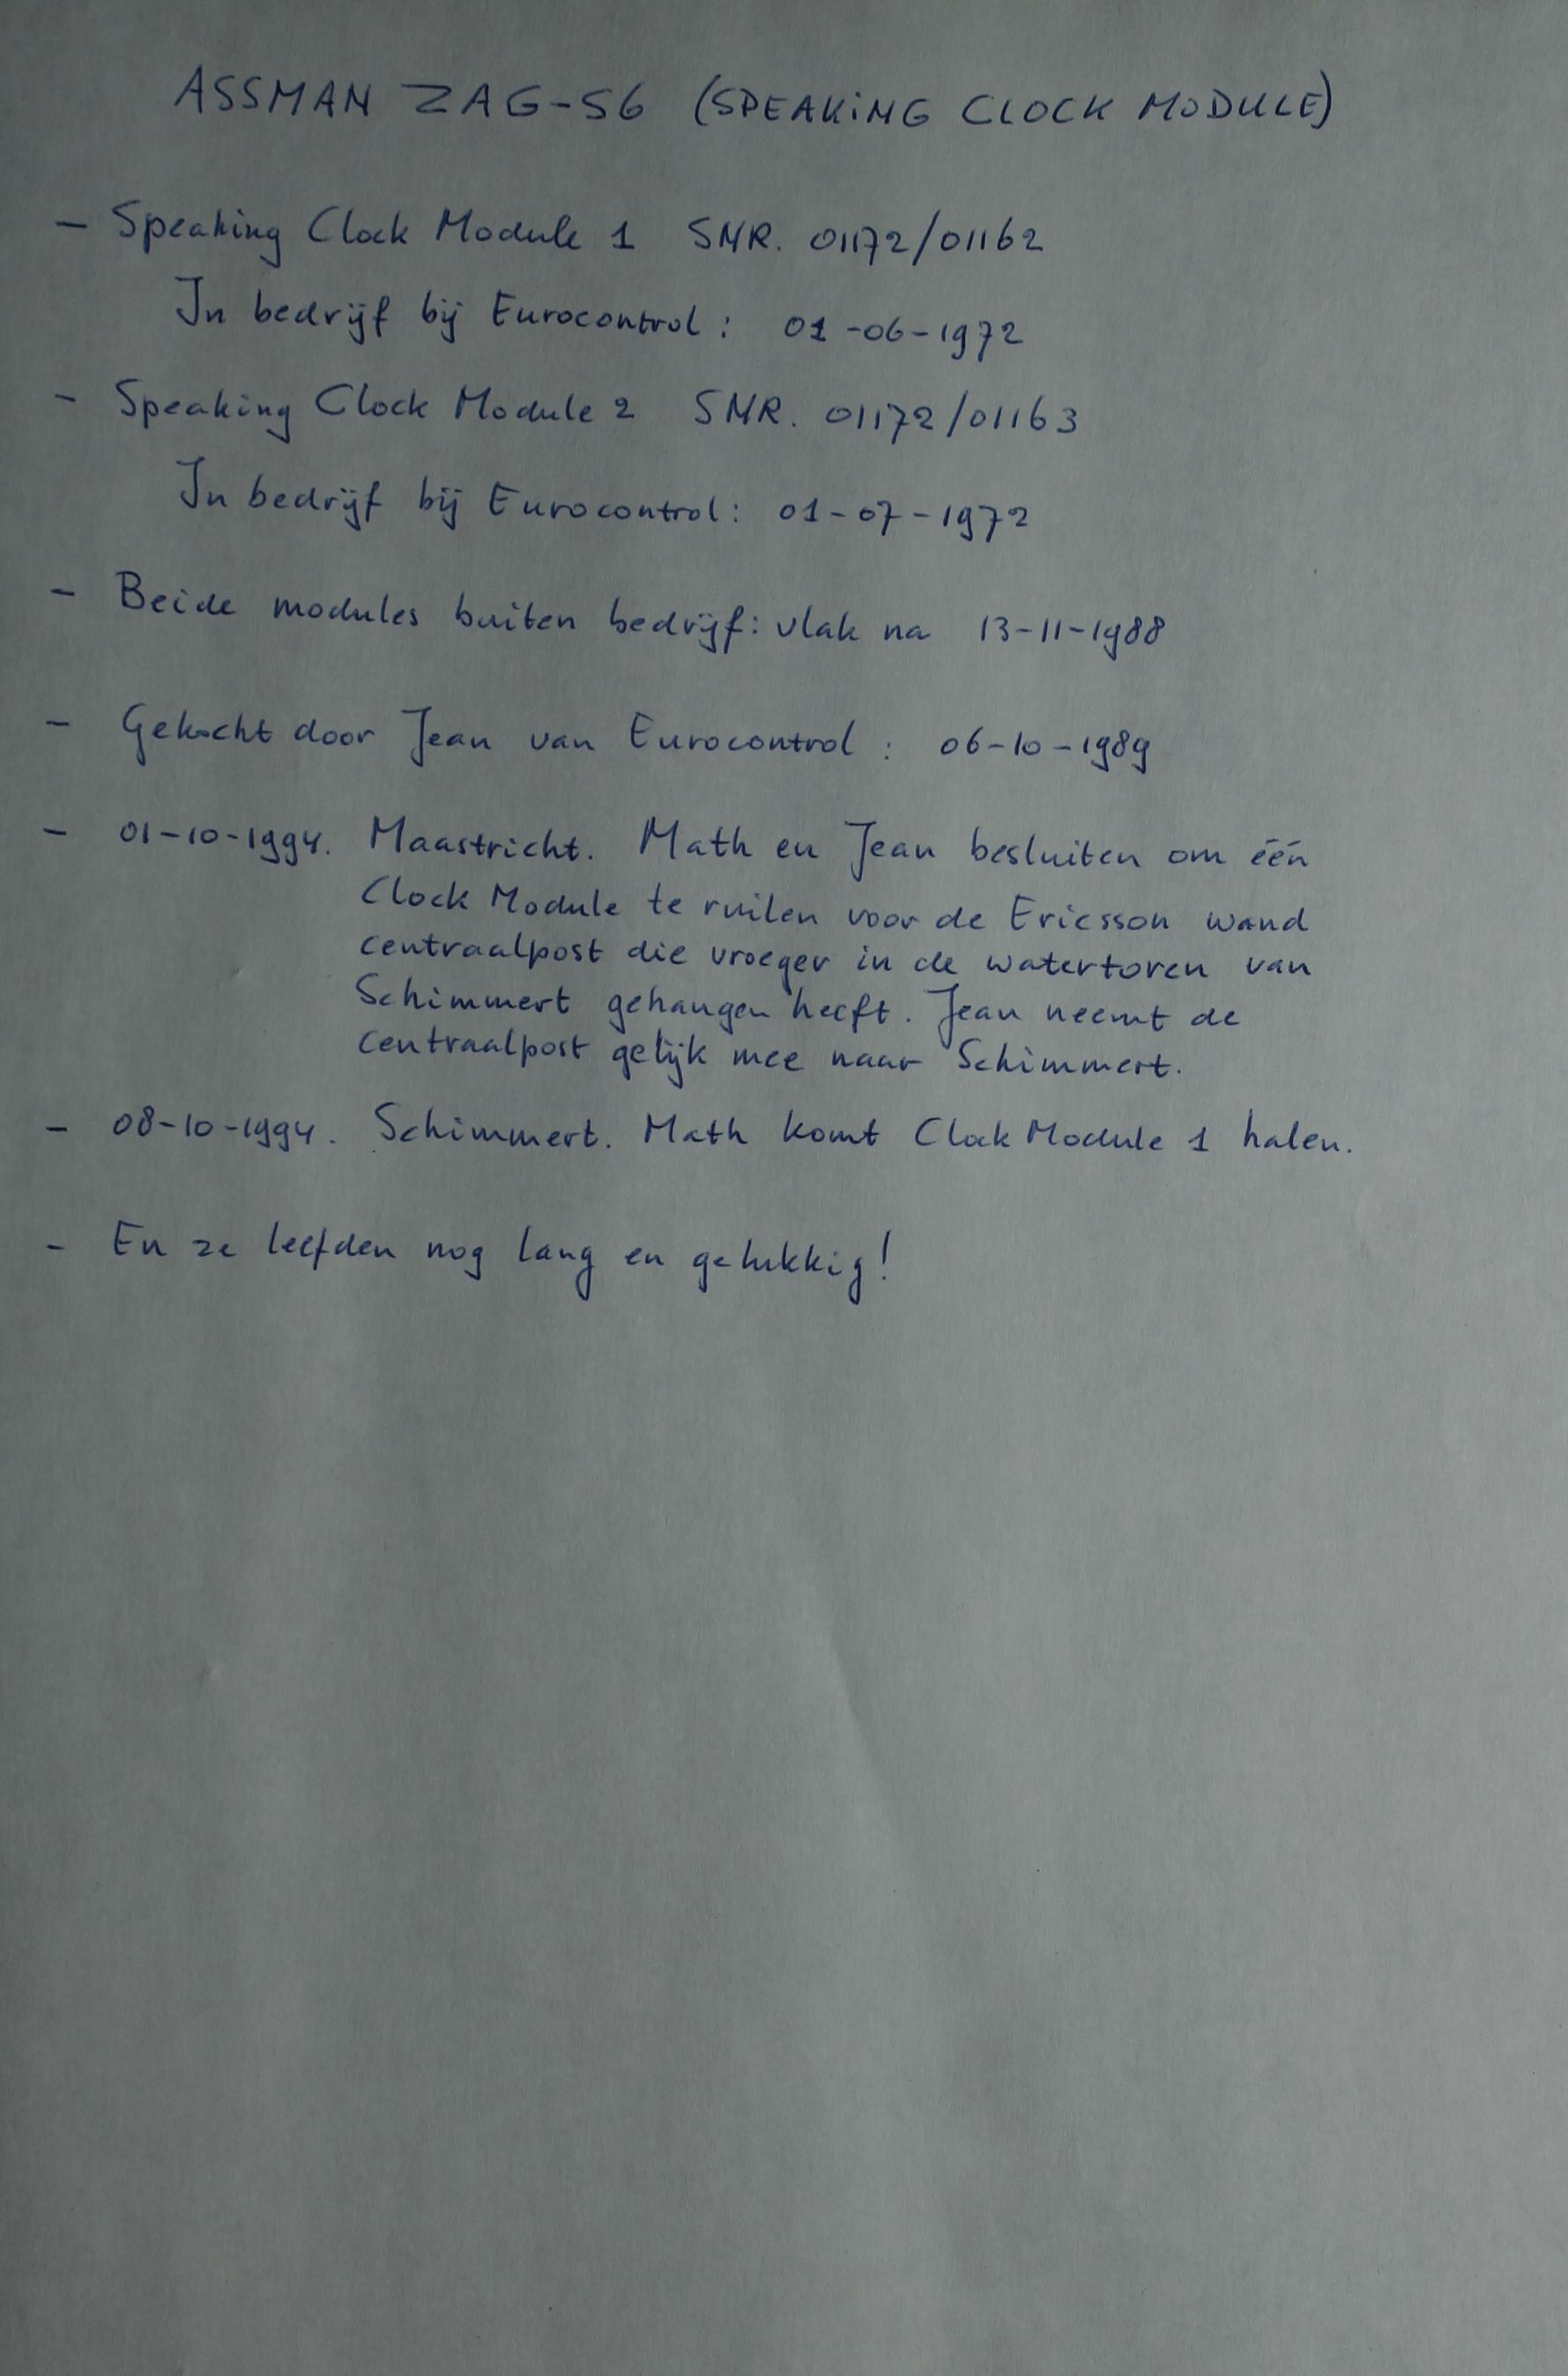 ASSMAN ZAG-S6 (SPEAKiNG CLOCK MODULE)
- Speaking Clock Module 1 SNR. 01172/01162
In bedrijf bij Eurocontrol: 01-06-1972
- Speaking Clock Module 2 SNR. 01172/01163
In bedrijf bij Eurocontrol: 01-07-1972
- Beide modules buiten bedrijf: vlak na 13-11-1988
- Gekocht door Jean van Eurocontrol: 06-10-1989
- 01-10-1994. Maastricht. Math en Jean besluiten om één
Clock Module te ruilen voor de Ericsson wand
centraalpost die vroeger in de watertoren van
Schimmert gehangen heeft. Jean neemt de
centraalpost gelijk mee naar Schimmert.
- 08-10-1994. Schimmert. Math komt Clock Module 1 halen.
- En ze leefden nog lang en gelukkig!